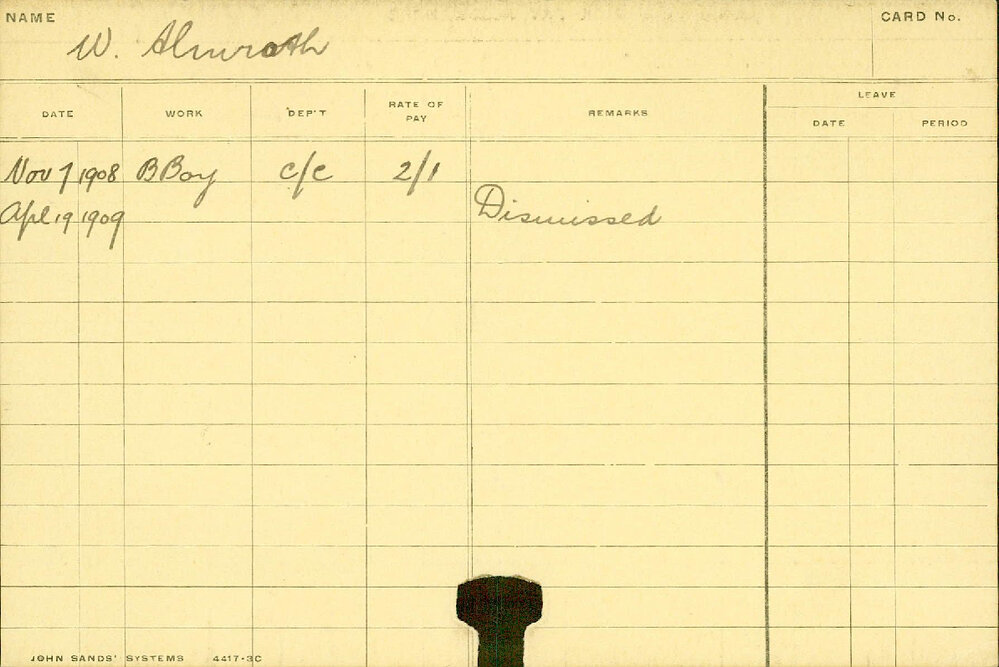 NAME
CARD No.
W. Alnwrath
DATE WORK DEP'T RATE OF PAY REMARKS LEAVE
DATE PERIOD
Nov 7 1908 B Boy c/c 2/1
Apl 19 1909 Dismissed
JOHN SANDS' SYSTEMS 4417-3C